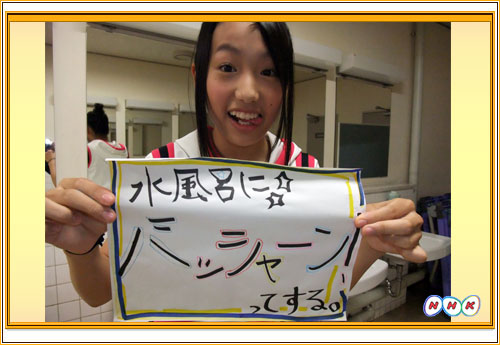 水風呂に☆☆
バッシャーン!
ってする。
NHK